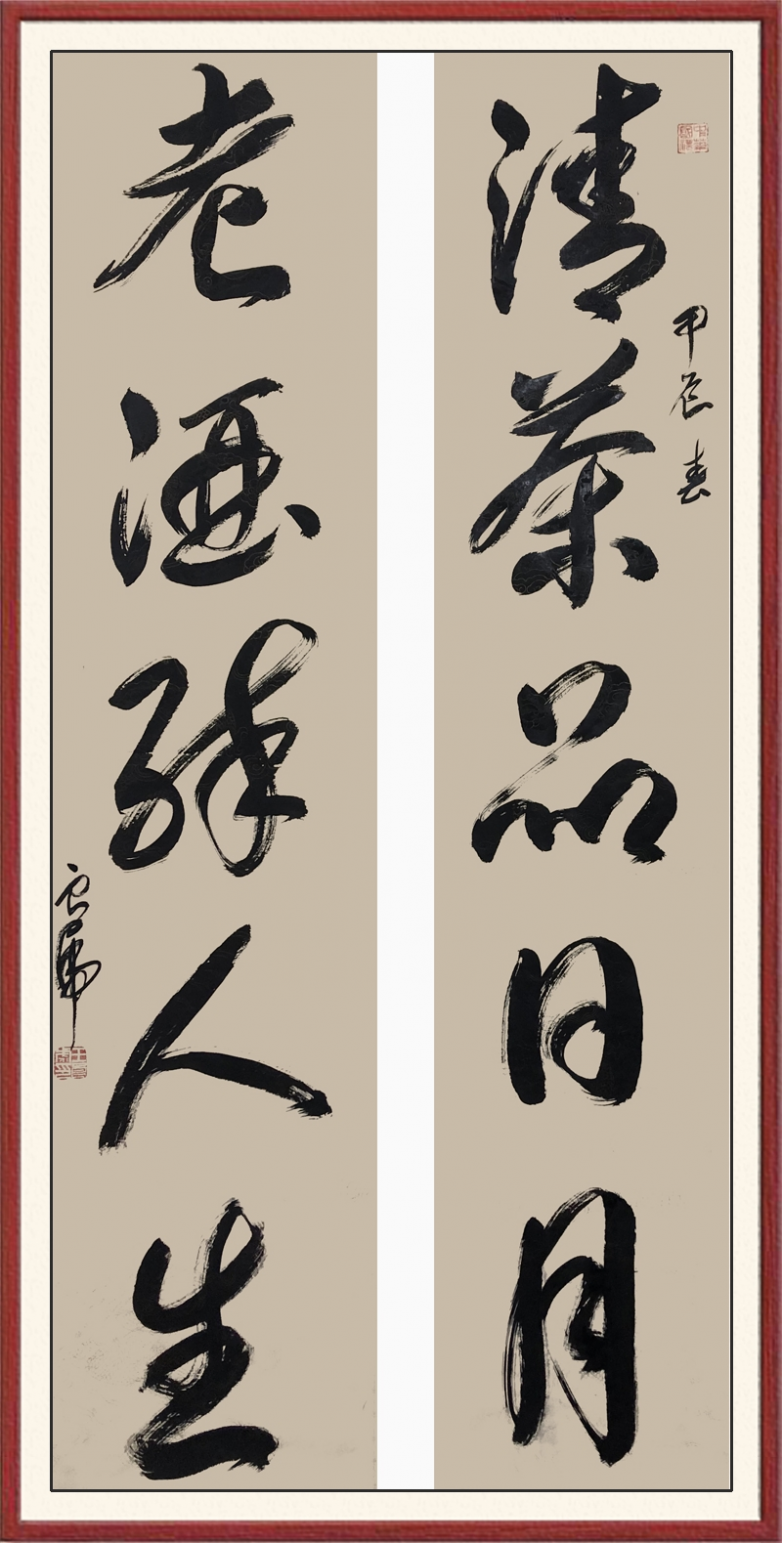 甲辰春
清茶品日月
老酒人生